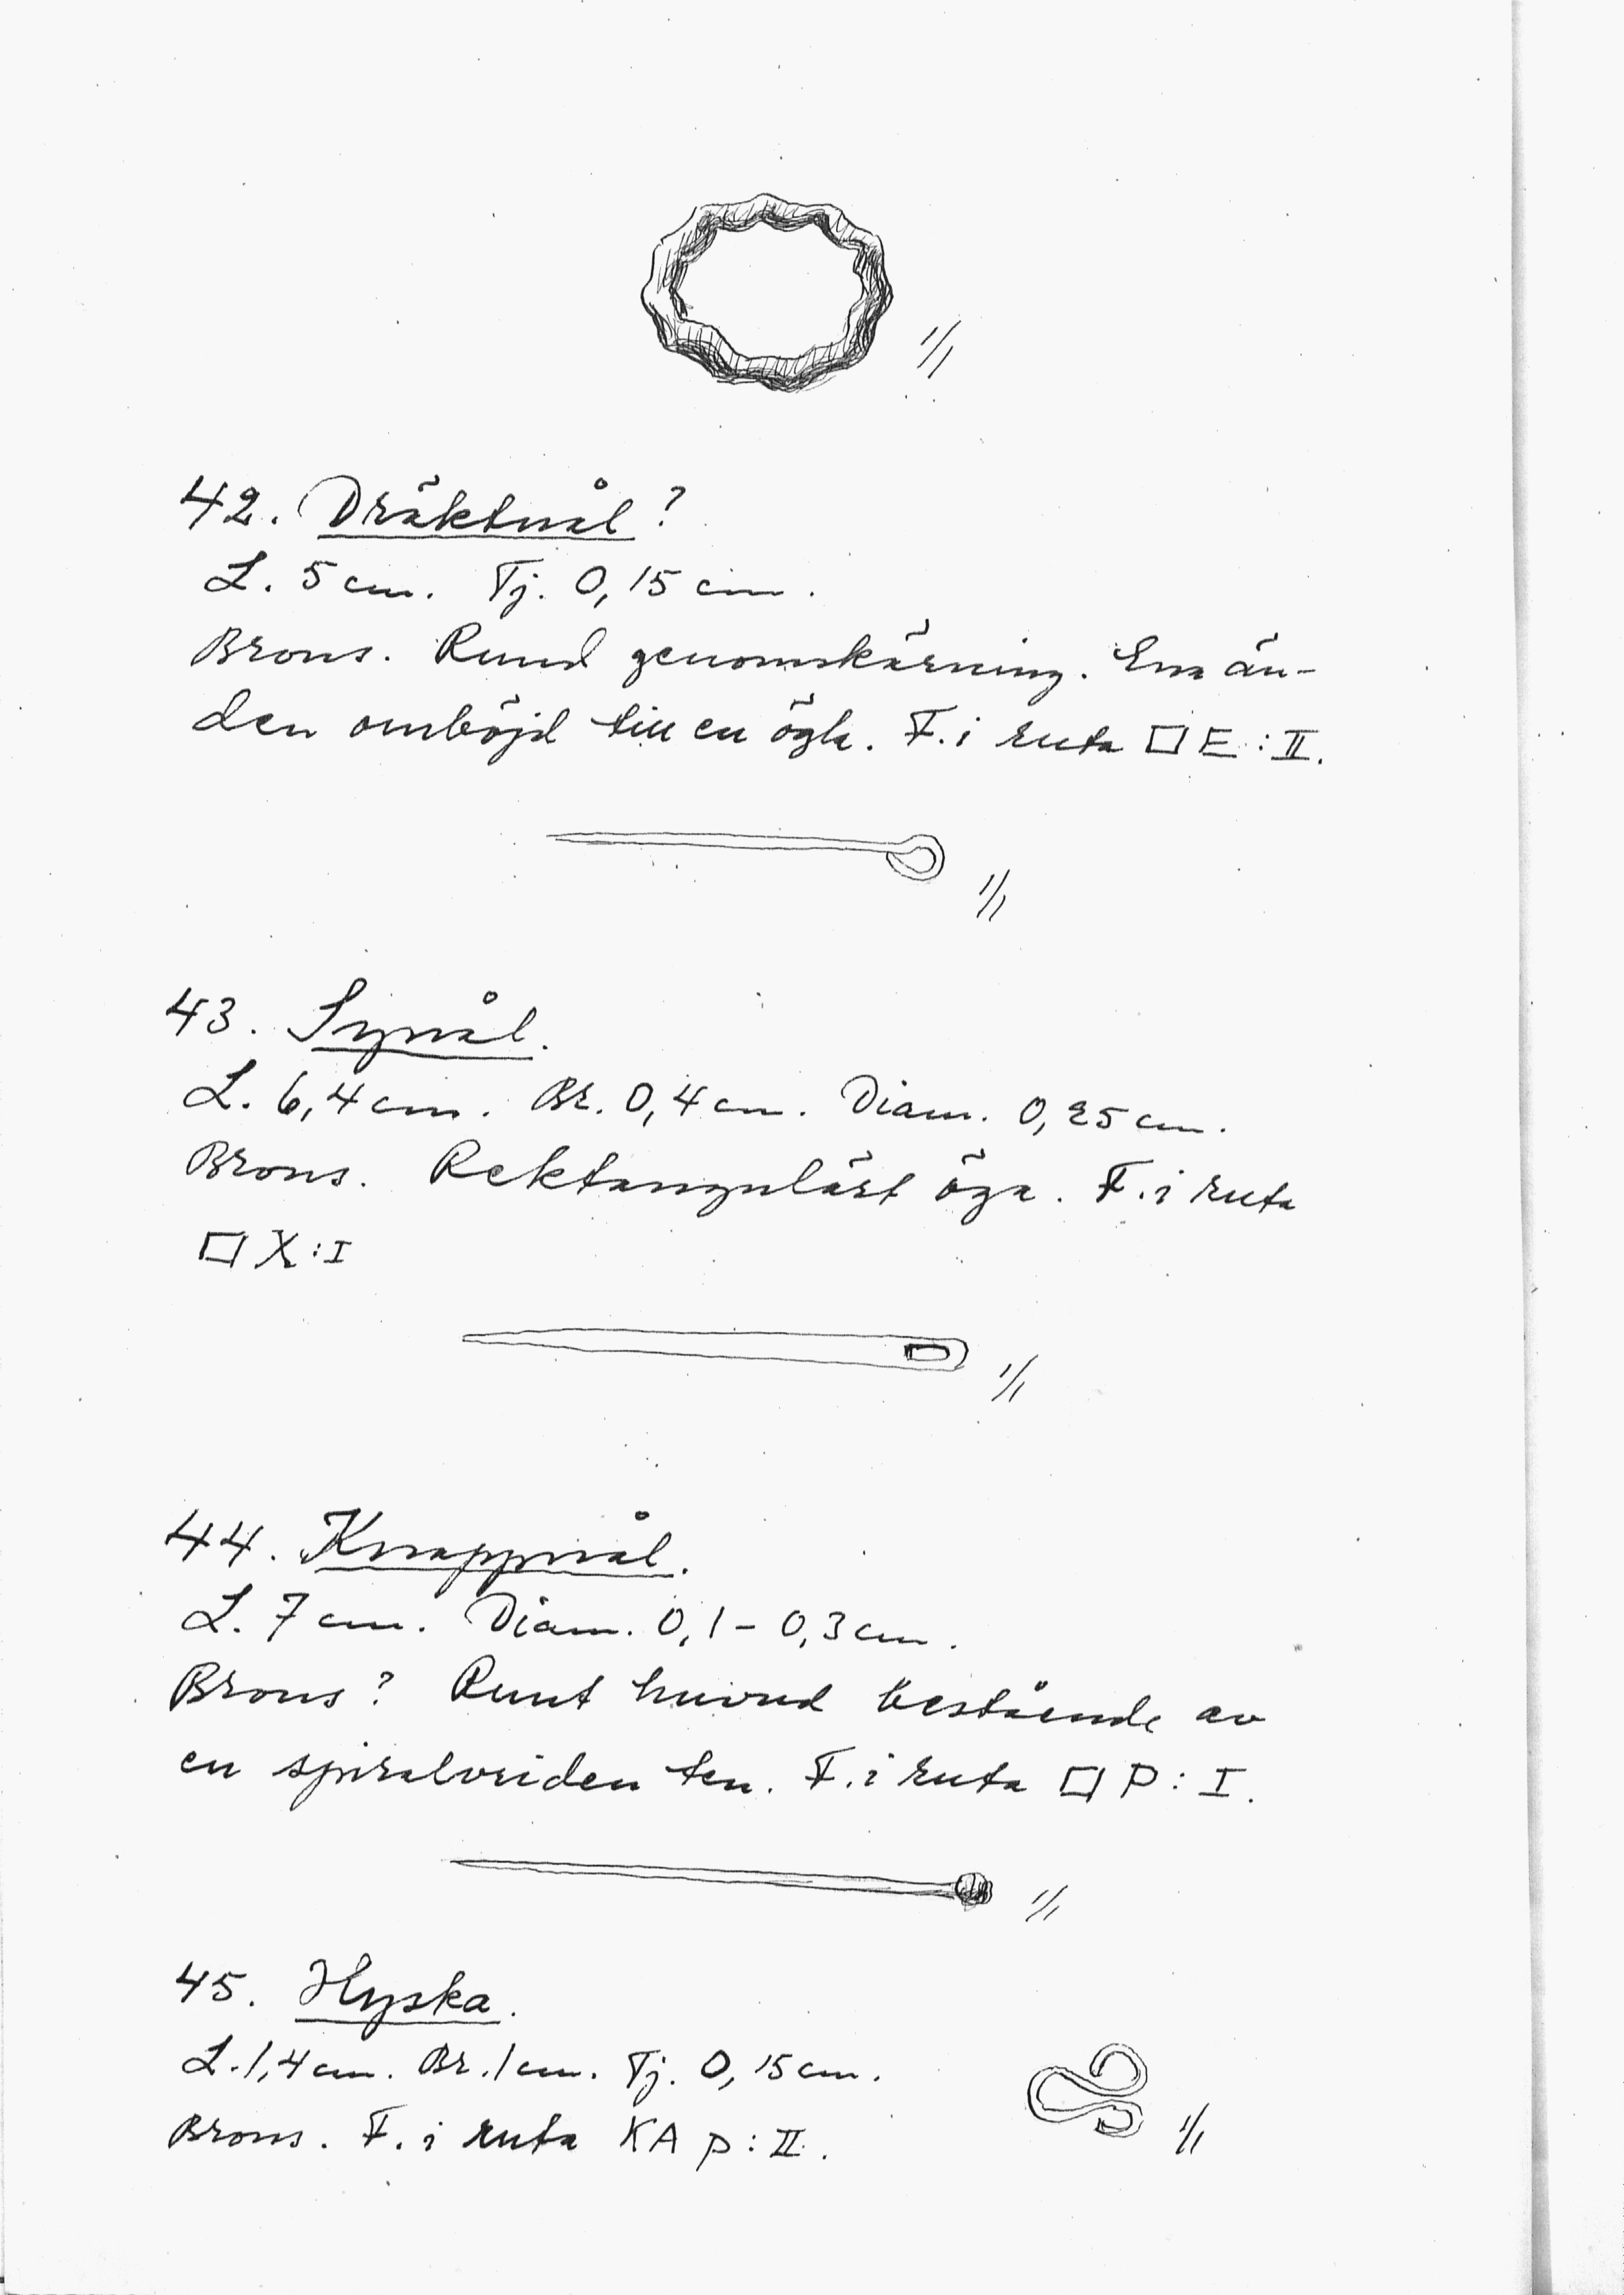 1/1
42. Dräktnål?
L. 5 cm. Tj. 0,15 cm.
Brons. Rund genomskärning. Ena än-
den omböjd till en ögla. F. i ruta □ E : II.
1/1
43. Synål.
L. 6,4 cm. Br. 0,4 cm. Diam. 0,25 cm.
Brons. Rektangulärt öga. F. i ruta
□ X : I
1/1
44. Knappnål.
L. 7 cm. Diam. 0,1 - 0,3 cm.
Brons? Runt huvud bestående av
en spiralvriden ten. F. i ruta □ P : I.
1/1
45. Hyska.
L. 1,4 cm. Br. 1 cm. Tj. 0,15 cm.
Brons. F. i ruta KA p : II.
1/1